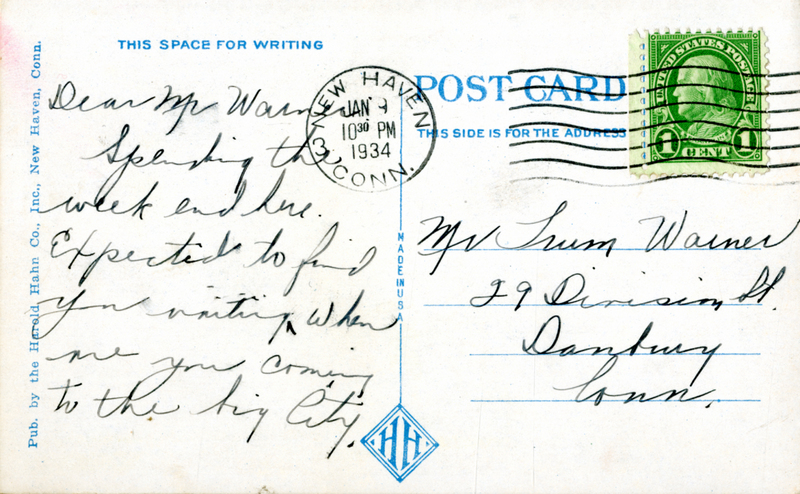 THIS SPACE FOR WRITING
Dear Mr Warner
Spending the
week end here.
Expected to find
you waiting, When
are you coming
to the big City.
Pub. by the Harold Hahn Co., Inc., New Haven, Conn.
NEW HAVEN
JAN 9
10 30 PM
1934
3
CONN.
MADE IN USA
HH
POST CARD
THIS SIDE IS FOR THE ADDRESS
UNITED STATES POSTAGE
1 CENT 1
Mr Warner
29 Division St.
Danbury
Conn.